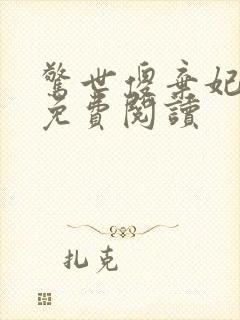 驚世傻棄妃
免費閱讀
扎克